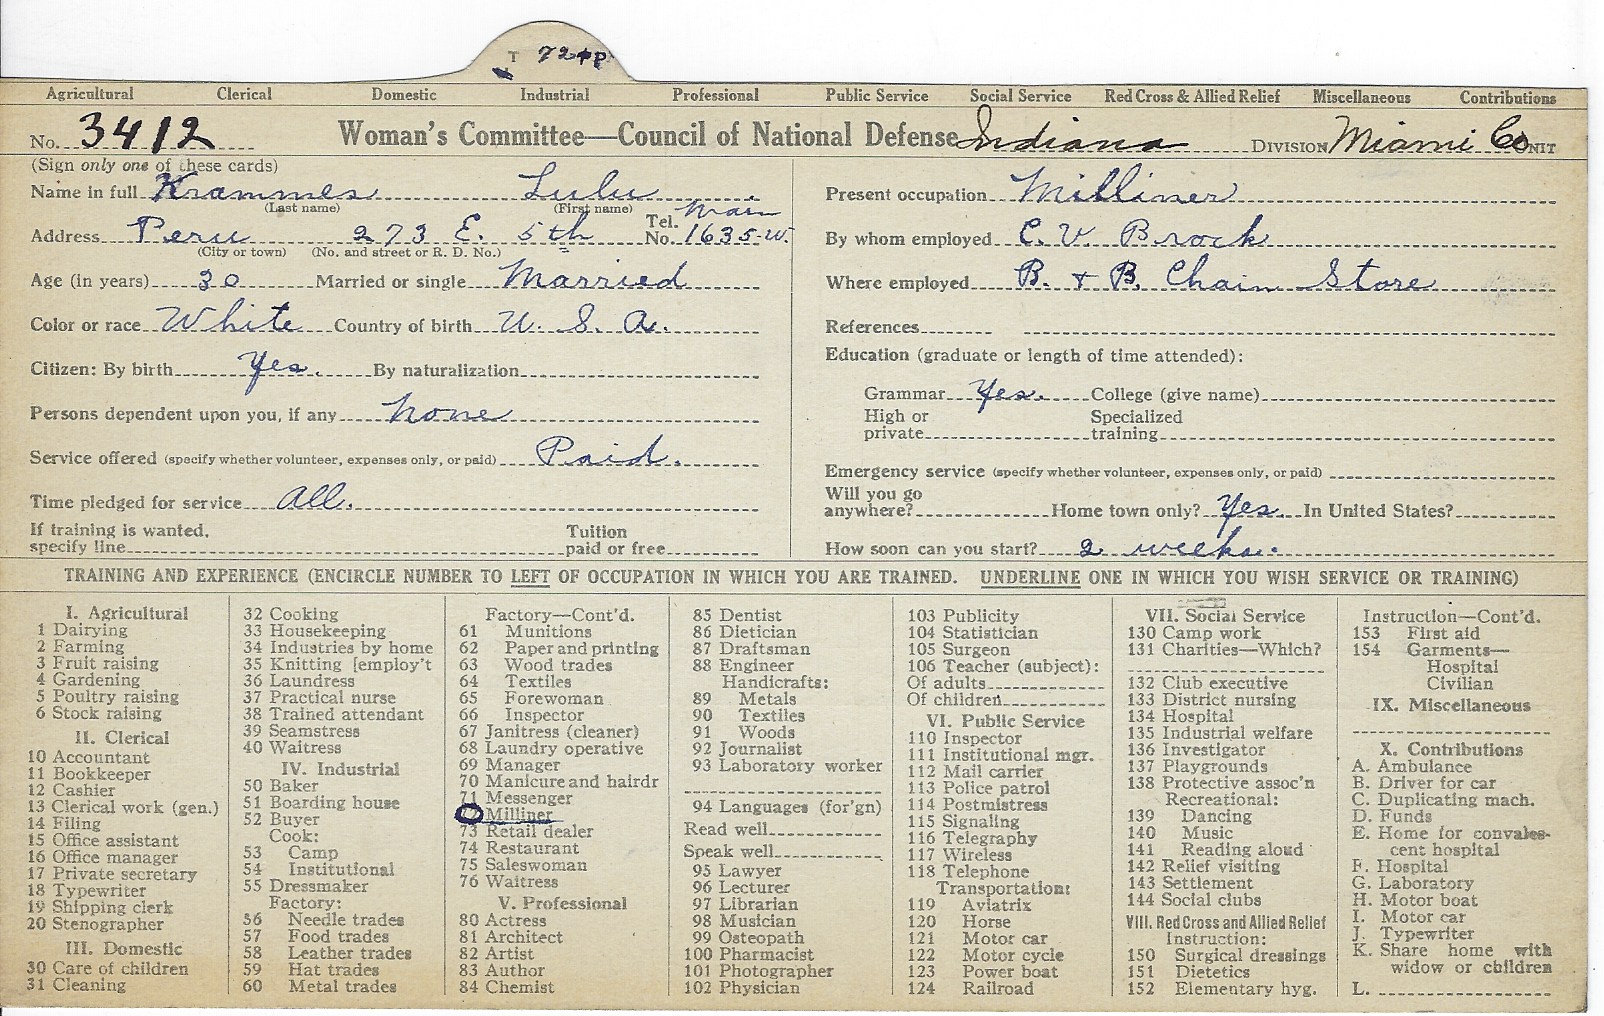 T 72
Agricultural Clerical Domestic Industrial Professional Public Service Social Service Red Cross & Allied Relief Miscellaneous Contributions
No. 3412 Woman's Committee—Council of National Defense Indiana DIVISION Miami Co UNIT
(Sign only one of these cards)
Name in full Krammes Lulu
(Last name) (First name)
Address Peru 273 E. 5th Tel. No. Main 1635-W.
(City or town) (No. and street or R. D. No.)
Age (in years) 30 Married or single Married
Color or race White Country of birth U. S. A.
Citizen: By birth Yes. By naturalization
Persons dependent upon you, if any none
Service offered (specify whether volunteer, expenses only, or paid) Paid.
Time pledged for service all.
If training is wanted, specify line Tuition paid or free
Present occupation Milliner
By whom employed C. V. Brock
Where employed B. + B. Chain Store
References
Education (graduate or length of time attended):
Grammar Yes. College (give name)
High or private Specialized training
Emergency service (specify whether volunteer, expenses only, or paid)
Will you go anywhere? Home town only? Yes. In United States?
How soon can you start? 2 weeks.
TRAINING AND EXPERIENCE (ENCIRCLE NUMBER TO LEFT OF OCCUPATION IN WHICH YOU ARE TRAINED. UNDERLINE ONE IN WHICH YOU WISH SERVICE OR TRAINING)
I. Agricultural
1 Dairying
2 Farming
3 Fruit raising
4 Gardening
5 Poultry raising
6 Stock raising
II. Clerical
10 Accountant
11 Bookkeeper
12 Cashier
13 Clerical work (gen.)
14 Filing
15 Office assistant
16 Office manager
17 Private secretary
18 Typewriter
19 Shipping clerk
20 Stenographer
III. Domestic
30 Care of children
31 Cleaning
32 Cooking
33 Housekeeping
34 Industries by home
35 Knitting [employ't
36 Laundress
37 Practical nurse
38 Trained attendant
39 Seamstress
40 Waitress
IV. Industrial
50 Baker
51 Boarding house
52 Buyer
Cook:
53 Camp
54 Institutional
55 Dressmaker
Factory:
56 Needle trades
57 Food trades
58 Leather trades
59 Hat trades
60 Metal trades
Factory—Cont'd.
61 Munitions
62 Paper and printing
63 Wood trades
64 Textiles
65 Forewoman
66 Inspector
67 Janitress (cleaner)
68 Laundry operative
69 Manager
70 Manicure and hairdr
71 Messenger
72 Milliner
73 Retail dealer
74 Restaurant
75 Saleswoman
76 Waitress
V. Professional
80 Actress
81 Architect
82 Artist
83 Author
84 Chemist
85 Dentist
86 Dietician
87 Draftsman
88 Engineer
Handicrafts:
89 Metals
90 Textiles
91 Woods
92 Journalist
93 Laboratory worker
94 Languages (for'gn)
Read well
Speak well
95 Lawyer
96 Lecturer
97 Librarian
98 Musician
99 Osteopath
100 Pharmacist
101 Photographer
102 Physician
103 Publicity
104 Statistician
105 Surgeon
106 Teacher (subject):
Of adults
Of children
VI. Public Service
110 Inspector
111 Institutional mgr.
112 Mail carrier
113 Police patrol
114 Postmistress
115 Signaling
116 Telegraphy
117 Wireless
118 Telephone
Transportation:
119 Aviatrix
120 Horse
121 Motor car
122 Motor cycle
123 Power boat
124 Railroad
VII. Social Service
130 Camp work
131 Charities—Which?
132 Club executive
133 District nursing
134 Hospital
135 Industrial welfare
136 Investigator
137 Playgrounds
138 Protective assoc'n
Recreational:
139 Dancing
140 Music
141 Reading aloud
142 Relief visiting
143 Settlement
144 Social clubs
VIII. Red Cross and Allied Relief
Instruction:
150 Surgical dressings
151 Dietetics
152 Elementary hyg.
Instruction—Cont'd.
153 First aid
154 Garments—
Hospital
Civilian
IX. Miscellaneous
X. Contributions
A. Ambulance
B. Driver for car
C. Duplicating mach.
D. Funds
E. Home for convales-
cent hospital
F. Hospital
G. Laboratory
H. Motor boat
I. Motor car
J. Typewriter
K. Share home with
widow or children
L.